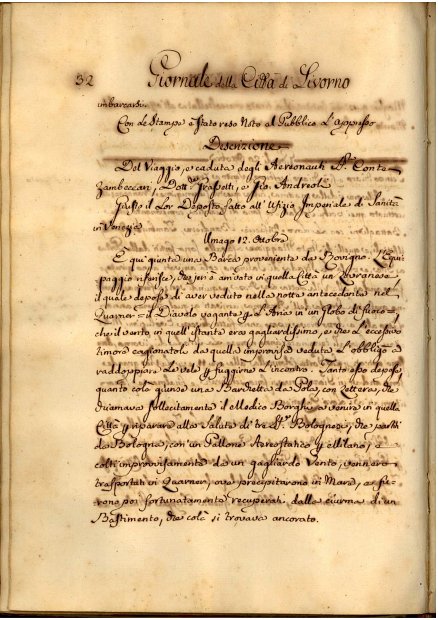 32 Giornale della Città di Livorno
imbarcarsi.
Con le Stampe è stato reso Noto al Pubblico L'appresso
Descrizione
Del Viaggio, e caduta degli Aereonauti SS.ri Conte
Zambeccari, Dott: Grassetti, e Pio. Andreoli
Giusto il Lor Deposto fatto all'Ufizio Imperiale di Sanità
in Venezia
Umago 12. Ottobre
È quì giunta una Barca proveniente da Rovigno. L'Equi
paggio riferisce, che jeri è arrivato in quella Città un Lovranese,
il quale depose di aver veduto nella notte antecedente nel
Quarner = il Diavolo vagante p. L'Aria in un globo di fuoco =
che il vento in quell'istante era gagliardissimo, e che L'eccessivo
timore cagionatole da quella improvisa veduta L'obbligò a
raddoppiare Le vele p. fuggirne L'incontro. Tanto esso depose,
quanto colà giunse una Barchetta da Pola, con Lettera, che
chiamava sollecitamente il Medico Borghi a venire in quella
Città p. riparare alla Salute di tre SS.ri Bolognesi, che partiti
da Bologna, con un Pallone Aereostatico p. Milano, e
colti improvisamente da un gagliardo Vento, vennero
trasportati in Quarner, ove precipitarono in Mare, e fu-
rono poi fortunatamente recuperati dalla ciurma di un
Bastimento, che colà si trovava ancorato.